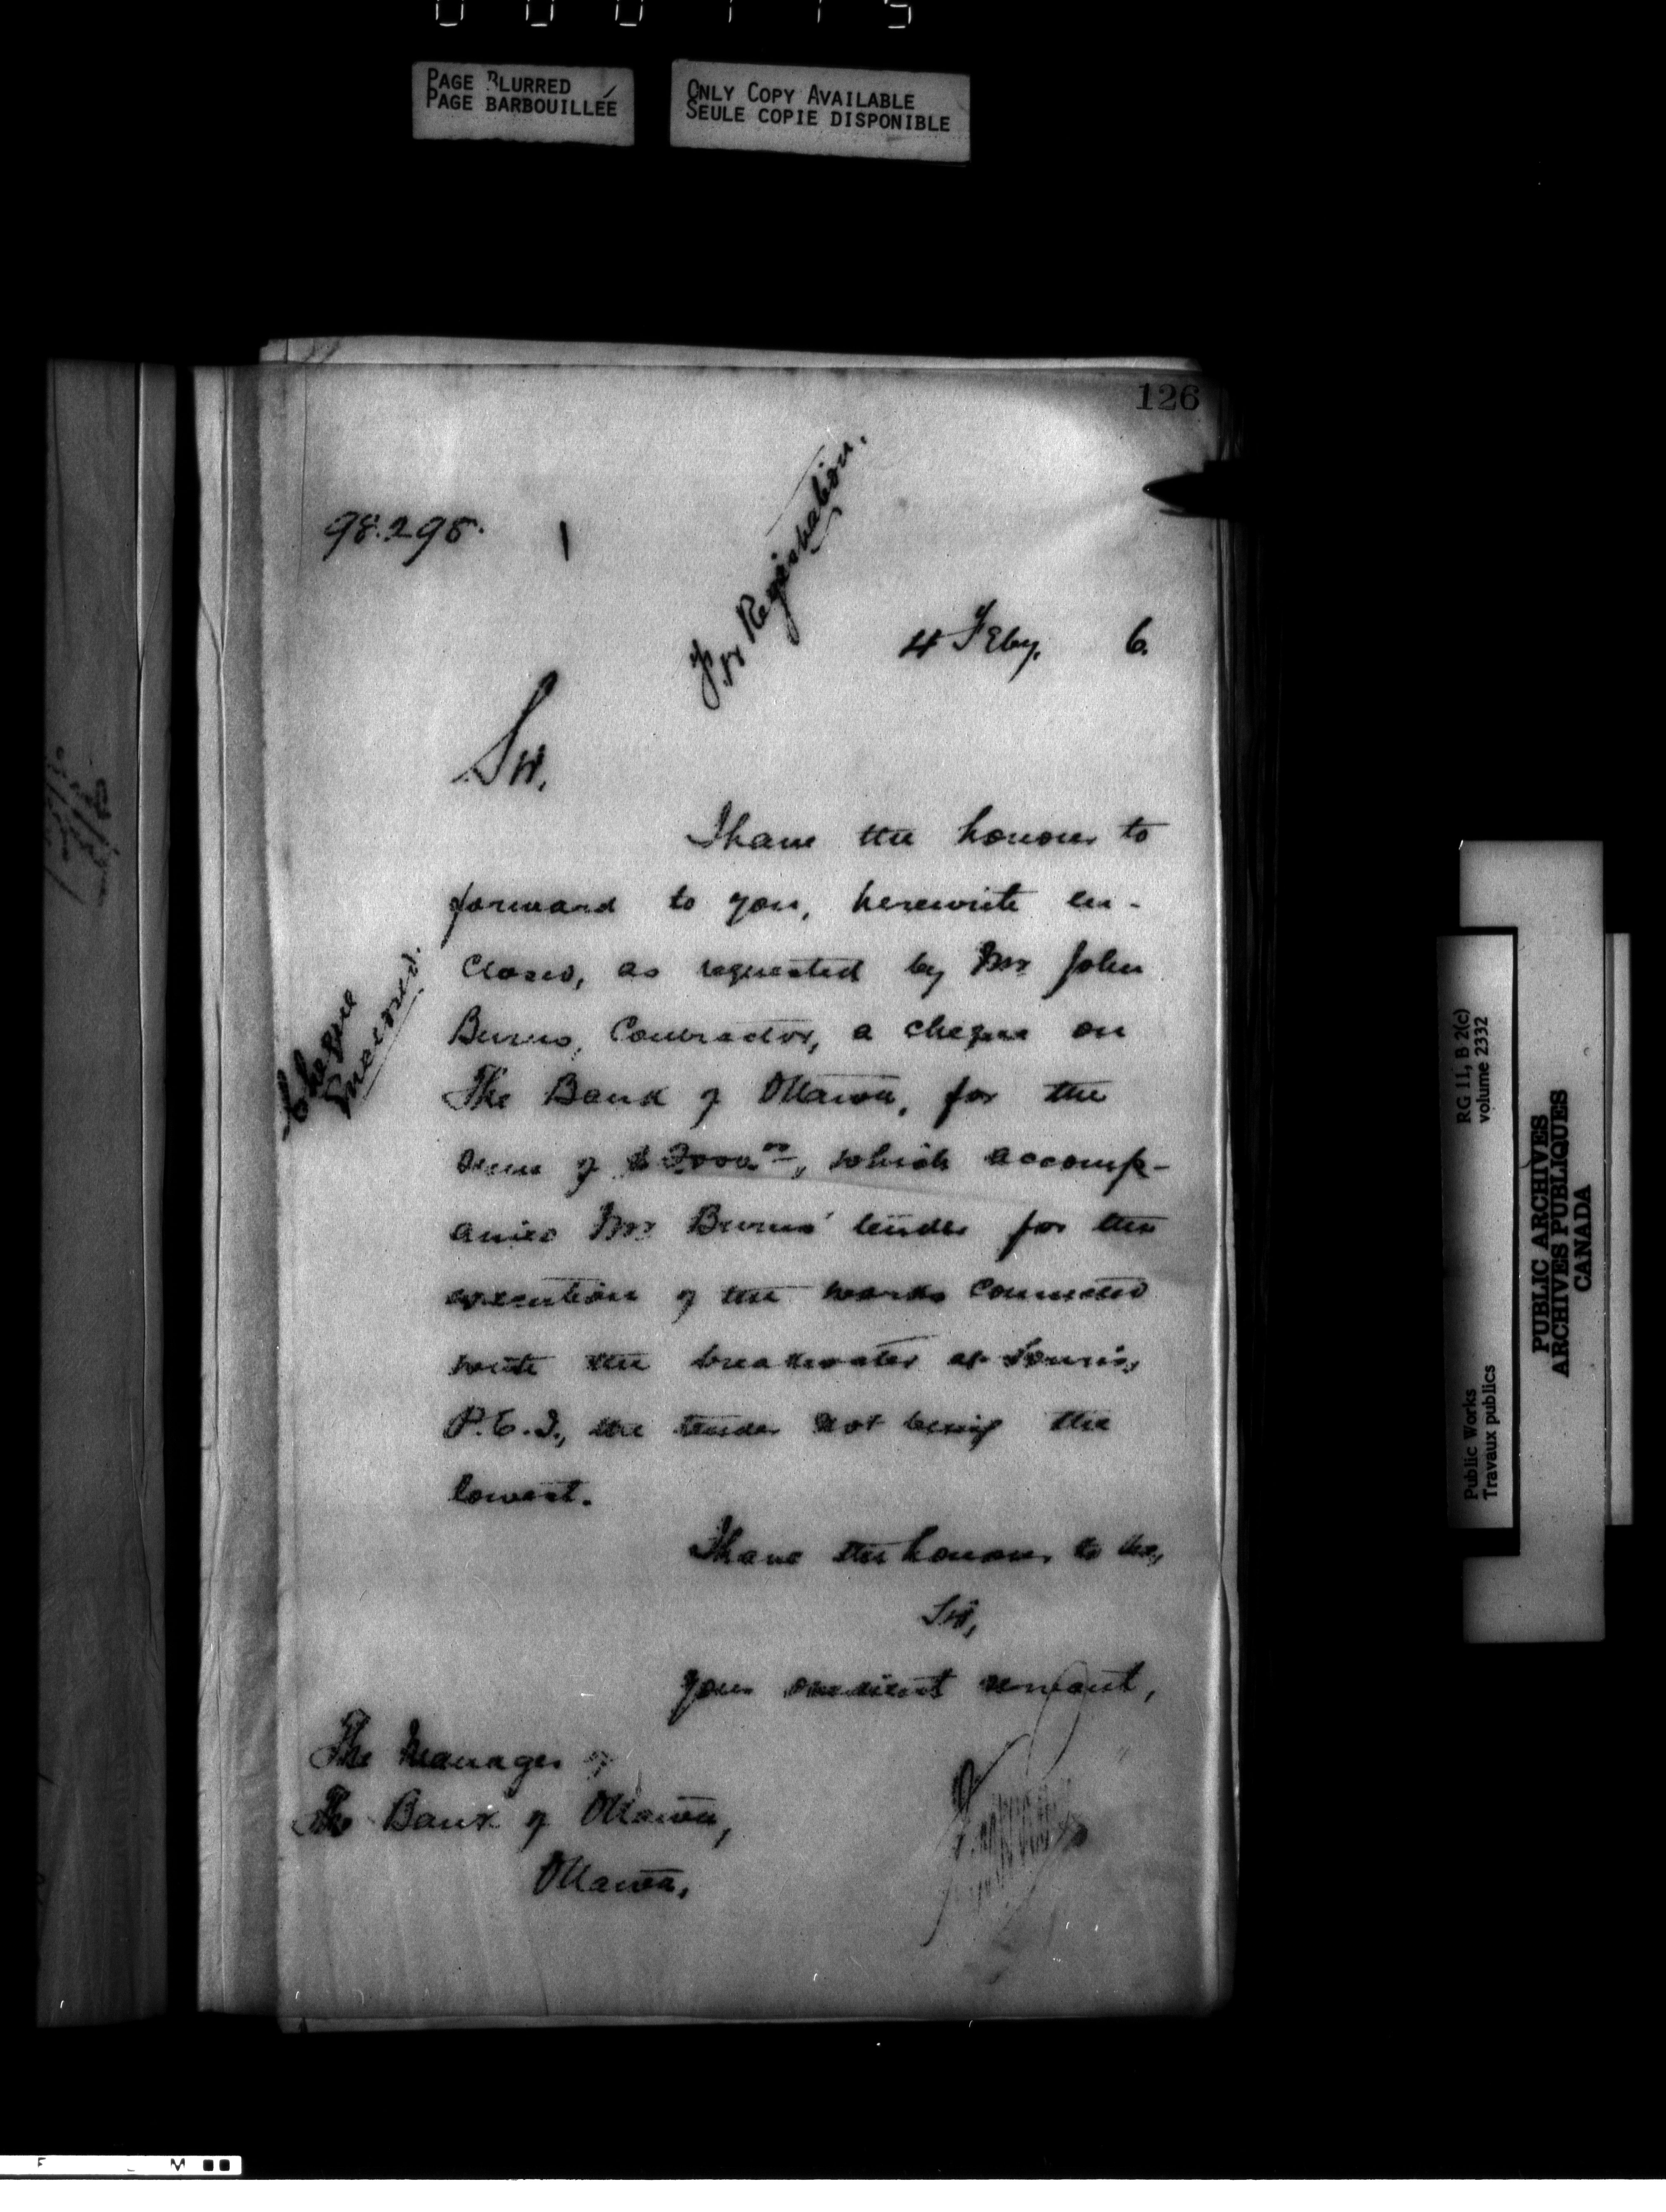 PAGE BLURRED
PAGE BARBOUILLÉE
ONLY COPY AVAILABLE
SEULE COPIE DISPONIBLE
126
98.298.
For Registration.
4 Feby. 6.
Sir,
I have the honour to
forward to you, herewith en-
closed, as requested by Mr John
Burns, Contractor, a cheque on
The Bank of Ottawa, for the
sum of $
which accomp-
anied Mr Burns' tender for the
execution of the works connected
with the breakwater at Souris,
P.E.I., the tender not being the
lowest.
I have the honour to be,
Sir,
your obedient servant,
The Manager of
The Bank of Ottawa,
Ottawa,
Cheque
Encosed.
RG 11, B 2(c)
volume 2332
Public Works
Travaux publics
PUBLIC ARCHIVES
ARCHIVES PUBLIQUES
CANADA